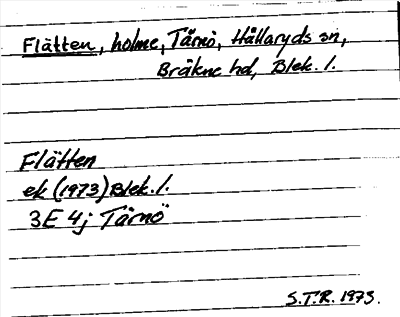 Flätten, holme, Tärnö, Hällaryds sn,
Bräkne hd, Blek. l.
Flätten
ek (1973) Blek. l.
3E 4j Tärnö
S.T.R. 1973.